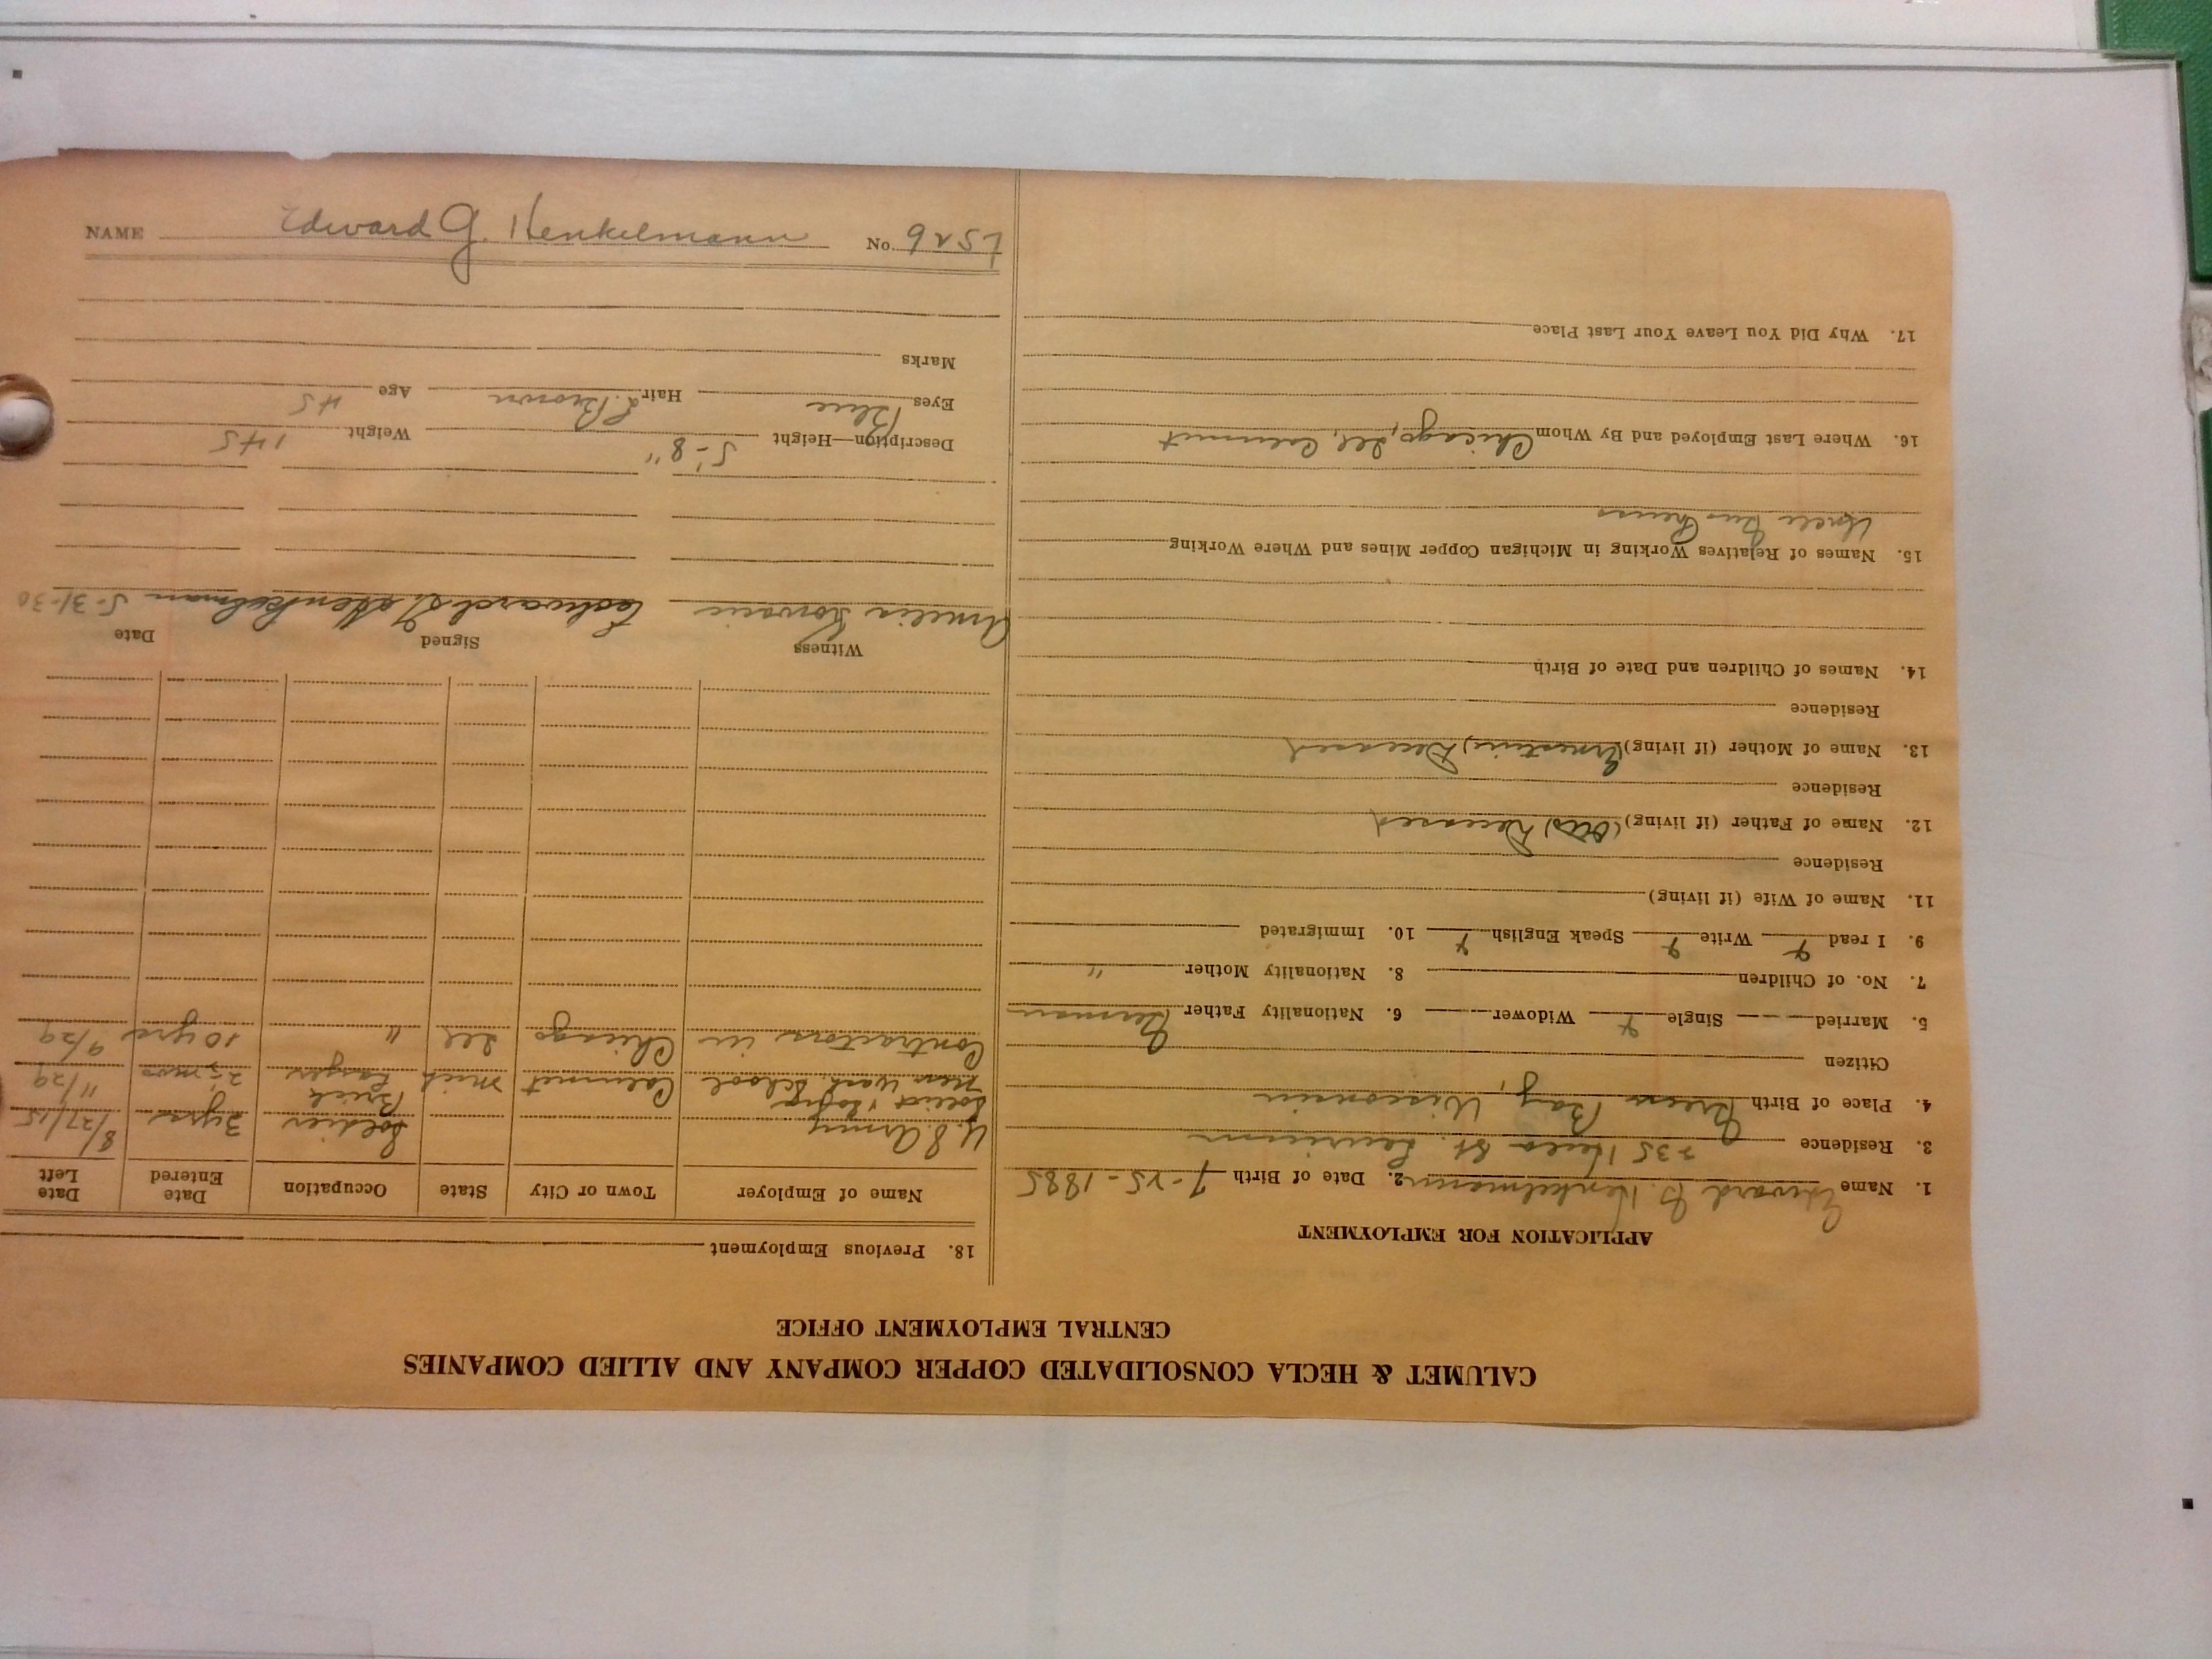 CALUMET & HECLA CONSOLIDATED COPPER COMPANY AND ALLIED COMPANIES
CENTRAL EMPLOYMENT OFFICE
APPLICATION FOR EMPLOYMENT
1. Name Edward G. Henkelmann 2. Date of Birth 7-25-1885
3. Residence 235 Hecla St. Laurium
4. Place of Birth Green Bay, Wisconsin
Citizen
5. Married Single x Widower 6. Nationality Father German
7. No. of Children 8. Nationality Mother "
9. I read x Write x Speak English x 10. Immigrated
11. Name of Wife (if living)
Residence
12. Name of Father (if living) Deceased
Residence
13. Name of Mother (if living) (Ernestine) Deceased
Residence
14. Names of Children and Date of Birth
15. Names of Relatives Working in Michigan Copper Mines and Where Working
Uncle Gus
16. Where Last Employed and By Whom Chicago, Ill, Calumet
17. Why Did You Leave Your Last Place
18. Previous Employment
Name of Employer Town or City State Occupation Date Entered Date Left
U.S. Army Soldier 3 yrs 8/27/15
New Wash. School Calumet Mich Brick Layer 2 1/2 mos 11/29
Contractors in Chicago Ill " 10 yrs 9/29
Witness Signed Date
Amelia Edward G. Henkelman 5-31-30
Description—Height 5'-8" Weight 145
Eyes Blue Hair L. Brown Age 45
Marks
NAME Edward G. Henkelmann No. 9257